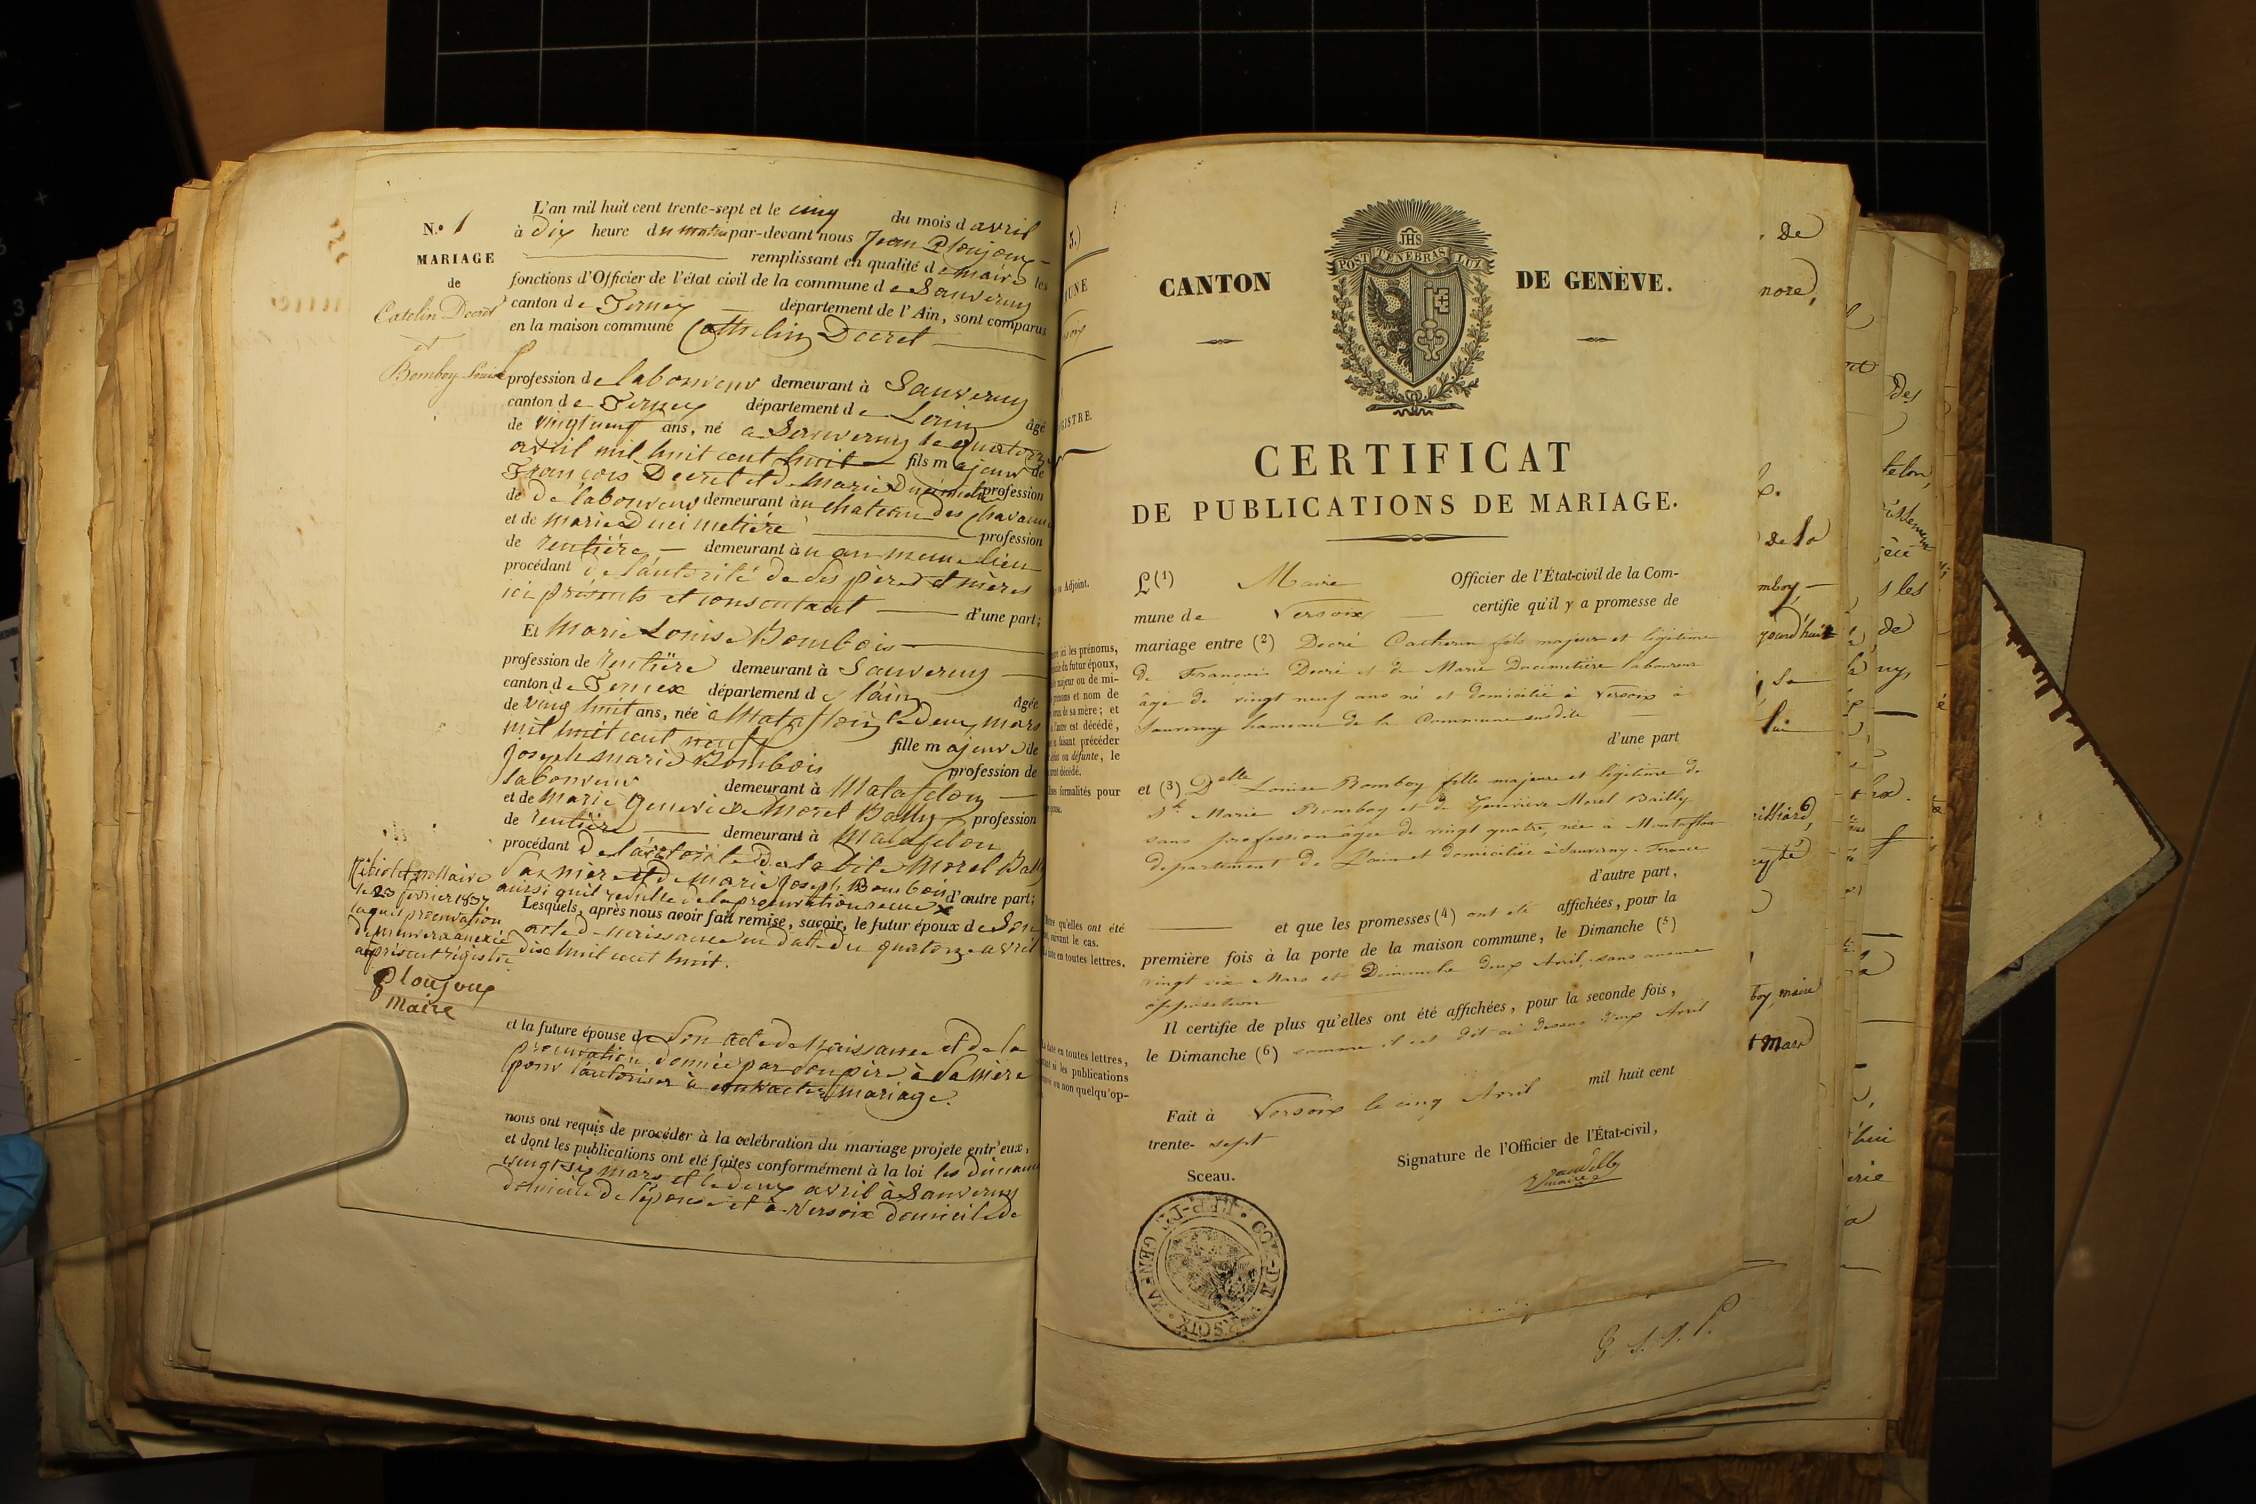 N.º 1
MARIAGE
de
Catelin Decret
et
Bomboy Louise
L'an mil huit cent trente-sept et le cinq du mois d avril
à dix heure du matin par-devant nous Jean Ploujoux
remplissant en qualité de maire les
fonctions d'Officier de l'état civil de la commune de Sauverny
canton de Ferney département de l'Ain, sont comparus
en la maison commune Cathelin Decret
profession de laboureur demeurant à Sauverny
canton de Ferney département de Lain âgé
de vingt neuf ans, né a Sauverny le quatorze
avril mil huit cent huit fils majeur de
François Decret et de Marie Ducimetière profession
de De laboureur demeurant au chateau des Chavannes
et de marie Ducimetière profession
de rentière demeurant à u au meme lieu
procédant de l'autorité de ses père et mères
ici présents et consentant d'une part;
Et Marie Louise Bombois
profession de rentière demeurant à Sauverny
canton de Fernex département de l'ain âgée
de vingt huit ans, née à Matafloin le deux mars
mil huit cent neuf fille majeure de
Joseph marie Bombois profession de
laboureur demeurant à Matafelon
et de marie Genevieve Morel Bally profession
de rentière demeurant à Matafelon
procédant De l'autorité de la dite Morel Bally
sa mère et de marie Joseph Bombois d'autre part;
aussi qu'il resulte de la procuration reçue X
le 23 fevrier 1837
laquel procuration
demeurera anexée
au présent régistre
Ploujoux
Maire
Lesquels, après nous avoir fait remise, savoir, le futur époux de Son
acte de naissance en date du quatorze avril
dixe huit cent huit.
et la future épouse de Son acte de Naissance et de la
procuration donnée par son père à sa mère
pour l'autoriser à contracter mariage.
nous ont requis de procéder à la célébration du mariage projeté entr'eux,
et dont les publications ont été faites conformément à la loi les dimanche
vingt six mars et le deux avril à Sauverny
domicile de l'épouse et à Versoix domicile de
CANTON DE GENÈVE.
JHS
POST TENEBRAS LUX
CERTIFICAT
DE PUBLICATIONS DE MARIAGE.
L (1) Maire Officier de l'État-civil de la Com-
mune de Versoix certifie qu'il y a promesse de
mariage entre (2) Decré Catherin fils majeur et légitime
de François Decré et de Marie Ducimetière laboureur
âgé de vingt neuf ans né et domicilié à Versoix à
Sauverny hameau de la Commune susdite
d'une part
et (3) Delle Louise Bomboy fille majeure et légitime de
Jh Marie Bomboy et de Geneviève Morel Bailly
sans profession âgée de vingt quatre, née à Montaflon
département de L'ain et domiciliée à Sauverny-France
d'autre part,
et que les promesses (4) ont été affichées, pour la
première fois à la porte de la maison commune, le Dimanche (5)
vingt six Mars et Dimanche deux Avril, sans aucune
opposition
Il certifie de plus qu'elles ont été affichées, pour la seconde fois,
le Dimanche (6) comme il est dit ci dessus deux Avril
Fait à Versoix le cinq Avril mil huit cent
trente- sept
Signature de l'Officier de l'État-civil,
maire
Sceau.